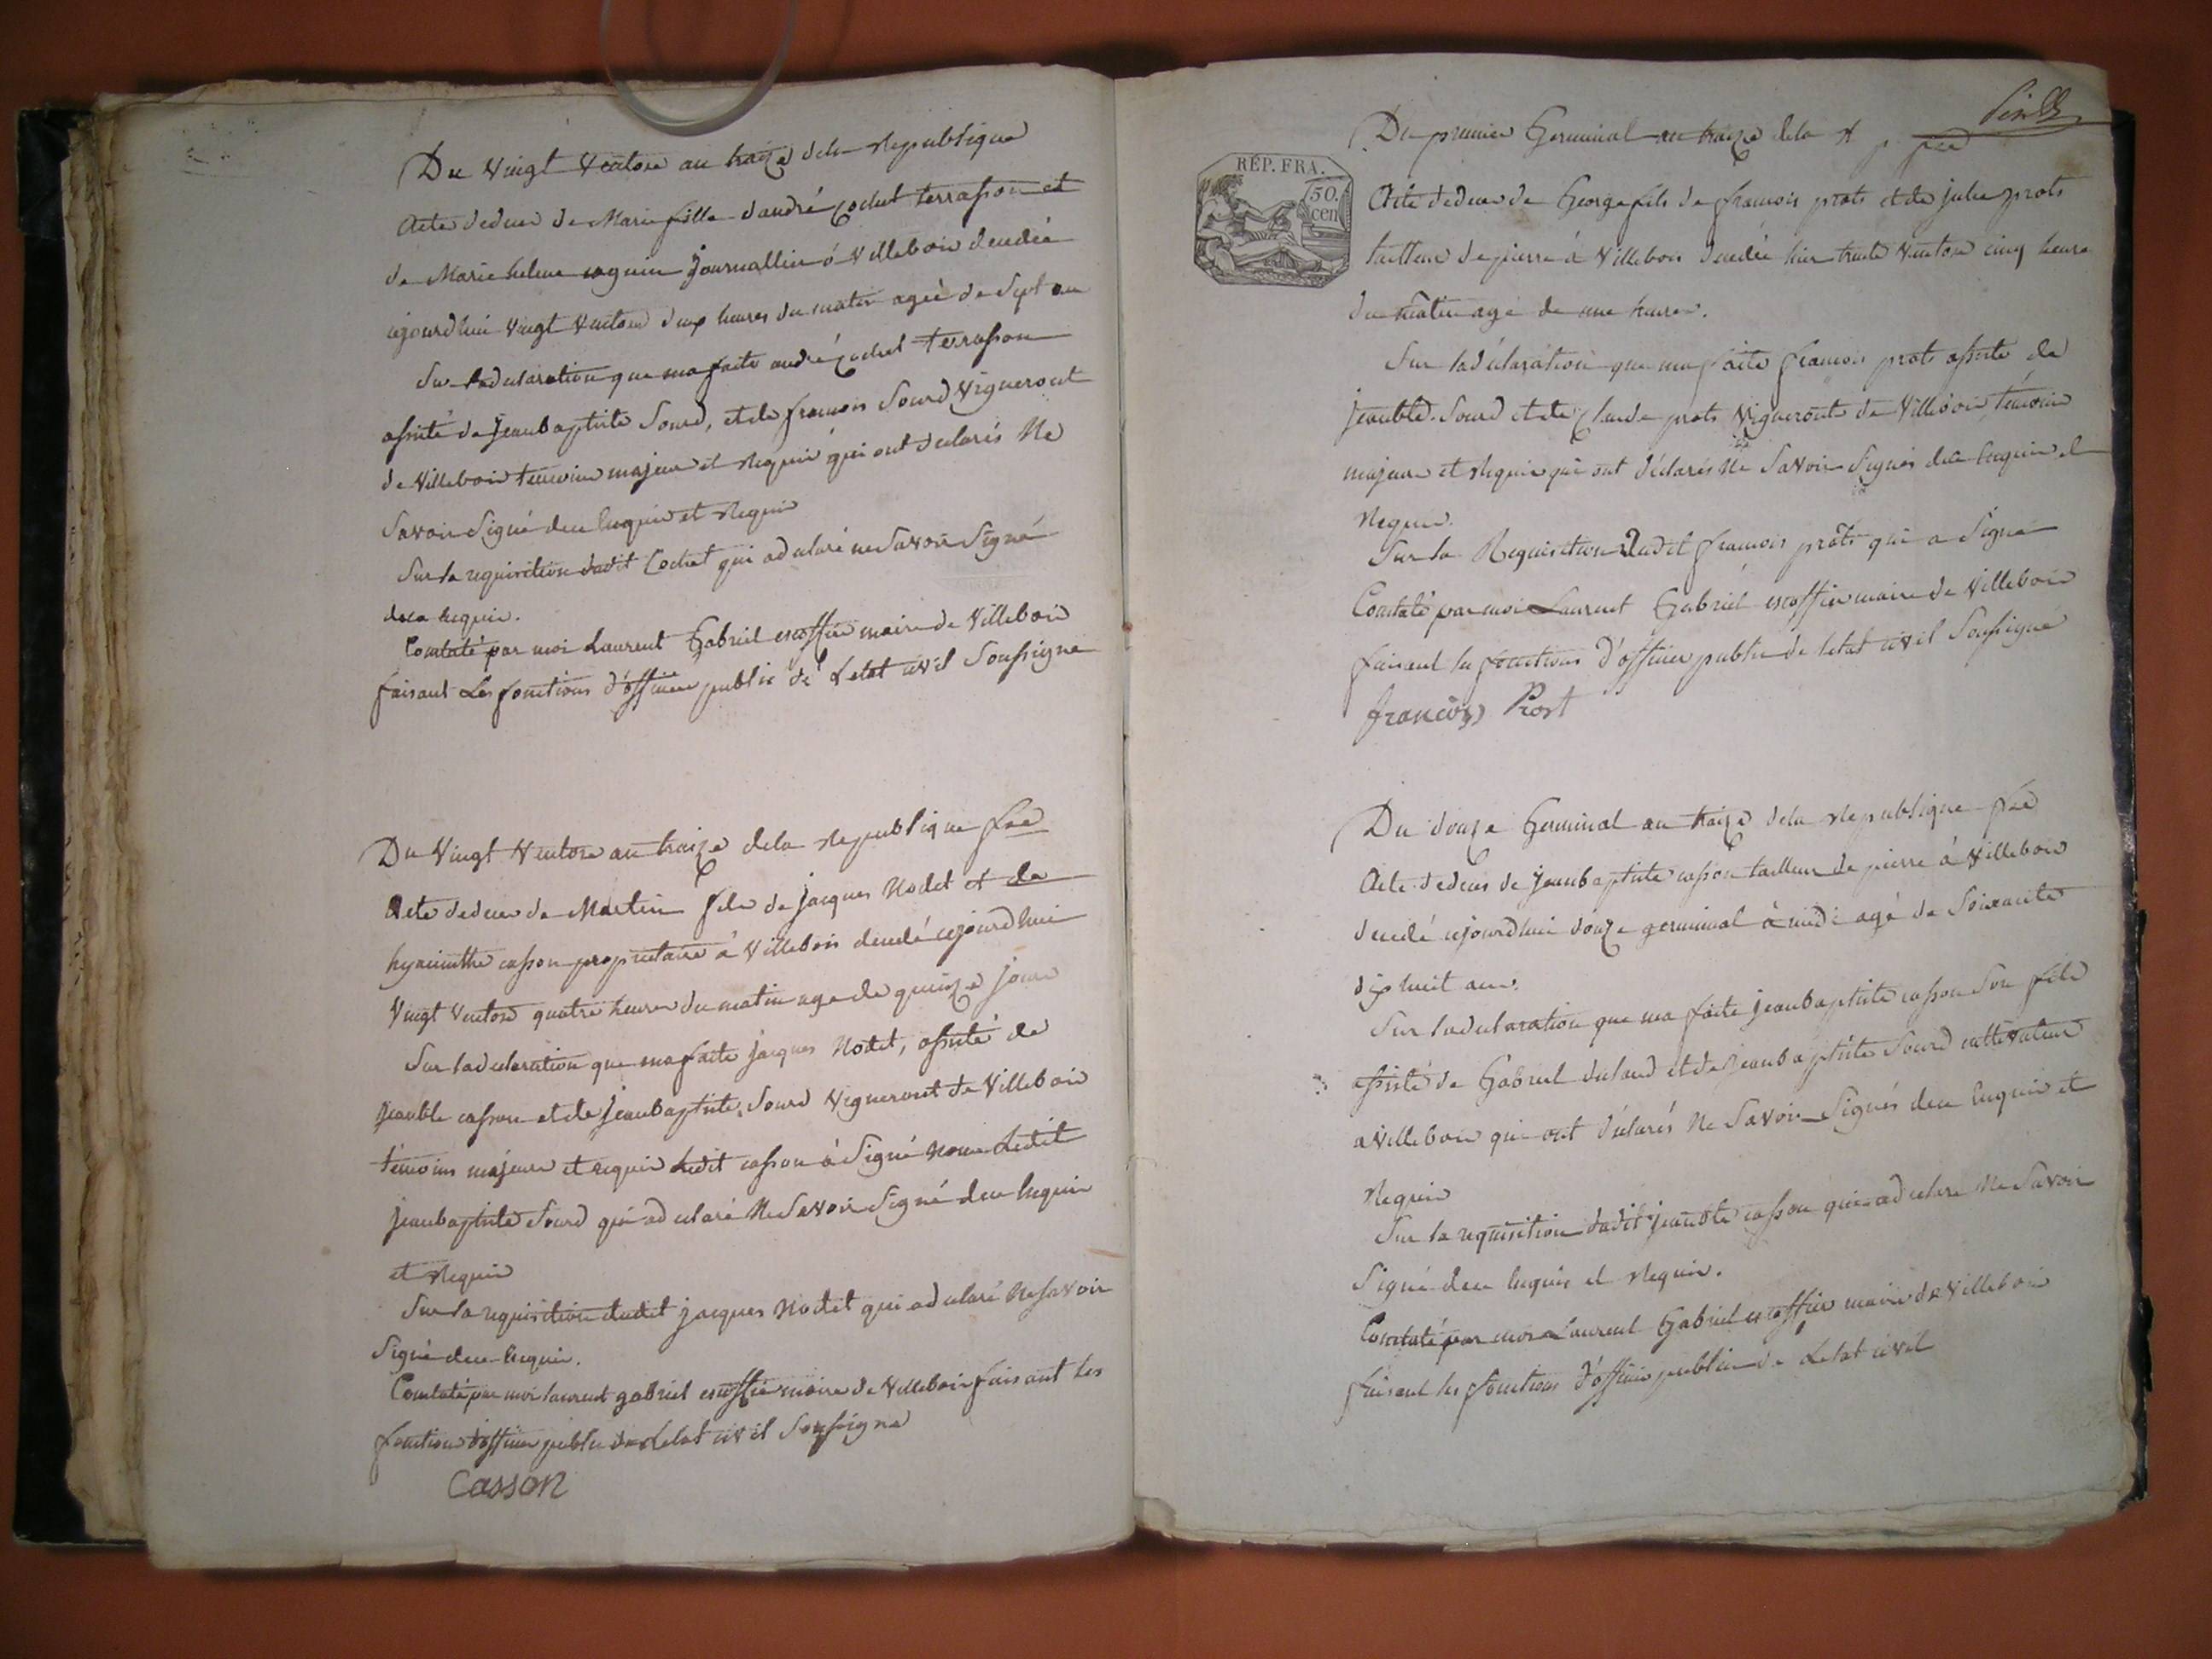 Du Vingt Ventose an traize dela Republique
Acte dedeces de Marie fille dandré Cochet terrasson et
de Marie helene coquin journallier à Villebois decedée
cejourdhui Vingt Ventose deux heures du matin agée de Sept an
Sur ladeclaration que ma faite andré Cochet terrasson
assisté de jeanbaptiste Sourd, et de francois Sourd Vigneront
de Villebois temoins majeurs et Requis qui ont declarés Ne
Savoir Signé dece Enquis et Requis
Sur la requisition dudit Cochet qui adeclaré ne Savoir Signé
dece Enquis.
Constaté par moi Laurent Gabriel escoffier maire de Villebois
faisant Les fonctions d'officier public de Letat civil Soussigne
Du Vingt Ventose an traize dela Republique fse
Acte dedeces de Martin fils de jacques Nodet et de
hyacinthe casson proprietaire à Villebois decedé cejourdhui
Vingt Ventose quatre heures du matin age de quinze jours
Sur ladeclaration que ma faite jacques Nodet, assisté de
jeanbte casson et de jeanbaptiste Sourd Vigneront de Villebois
témoins majeurs et requis Ledit casson à Signé Non Ledit
jeanbaptiste Sourd qui adeclaré Ne Savoir Signé dece Enquis
et Requis
Sur la requisition dudit jacques Nodet qui adeclaré Ne Savoir
Signé dece Enquis.
Constaté par moi laurent gabriel escoffier maire de Villebois faisant les
fonctions d'officier public de Letat civil Soussigne
Casson
Du premier Germinal an traize dela R p fse
RÉP. FRA.
50.
cen
Acte dedeces de George fils de francois prots et de julie prots
tailleur de pierre à Villebois decedée hier trente Ventose cinq heure
du matin agé de une heure.
Sur la déclaration que ma faite francois prots assisté de
jeanbte. Sourd et de Claude prots Vigneronts de Villebois témoins
majeurs et Requis qui ont déclarés Ne Savoir Signés dece Enquis et
Requis.
Sur la Requisition dudit francois prots qui a Signé
Constaté par moi Laurent Gabriel escoffier maire de Villebois
faisant les fonctions d'officier public de letat civil Soussigné
francois Prost
Du douze Germinal an traize dela Republique fse
Acte dedeces de jeanbaptiste casson tailleur de pierre à Villebois
decedé cejourdhui douze germinal à midi agé de Soixante
dix huit ans.
Sur ladeclaration que ma faite jeanbaptiste casson Son fils
assisté de Gabriel et de Jeanbaptiste Sourd cultivateur
a Villebois qui ont déclarés Ne Savoir Signés dece Enquis et
Requis
Sur la requisition dudit jeanbte casson qui adeclaré Ne Savoir
Signé dece Enquis et Requis.
Constaté par moi Laurent Gabriel escoffier maire de Villebois
faisant les fonctions d'officier public de Letat civil